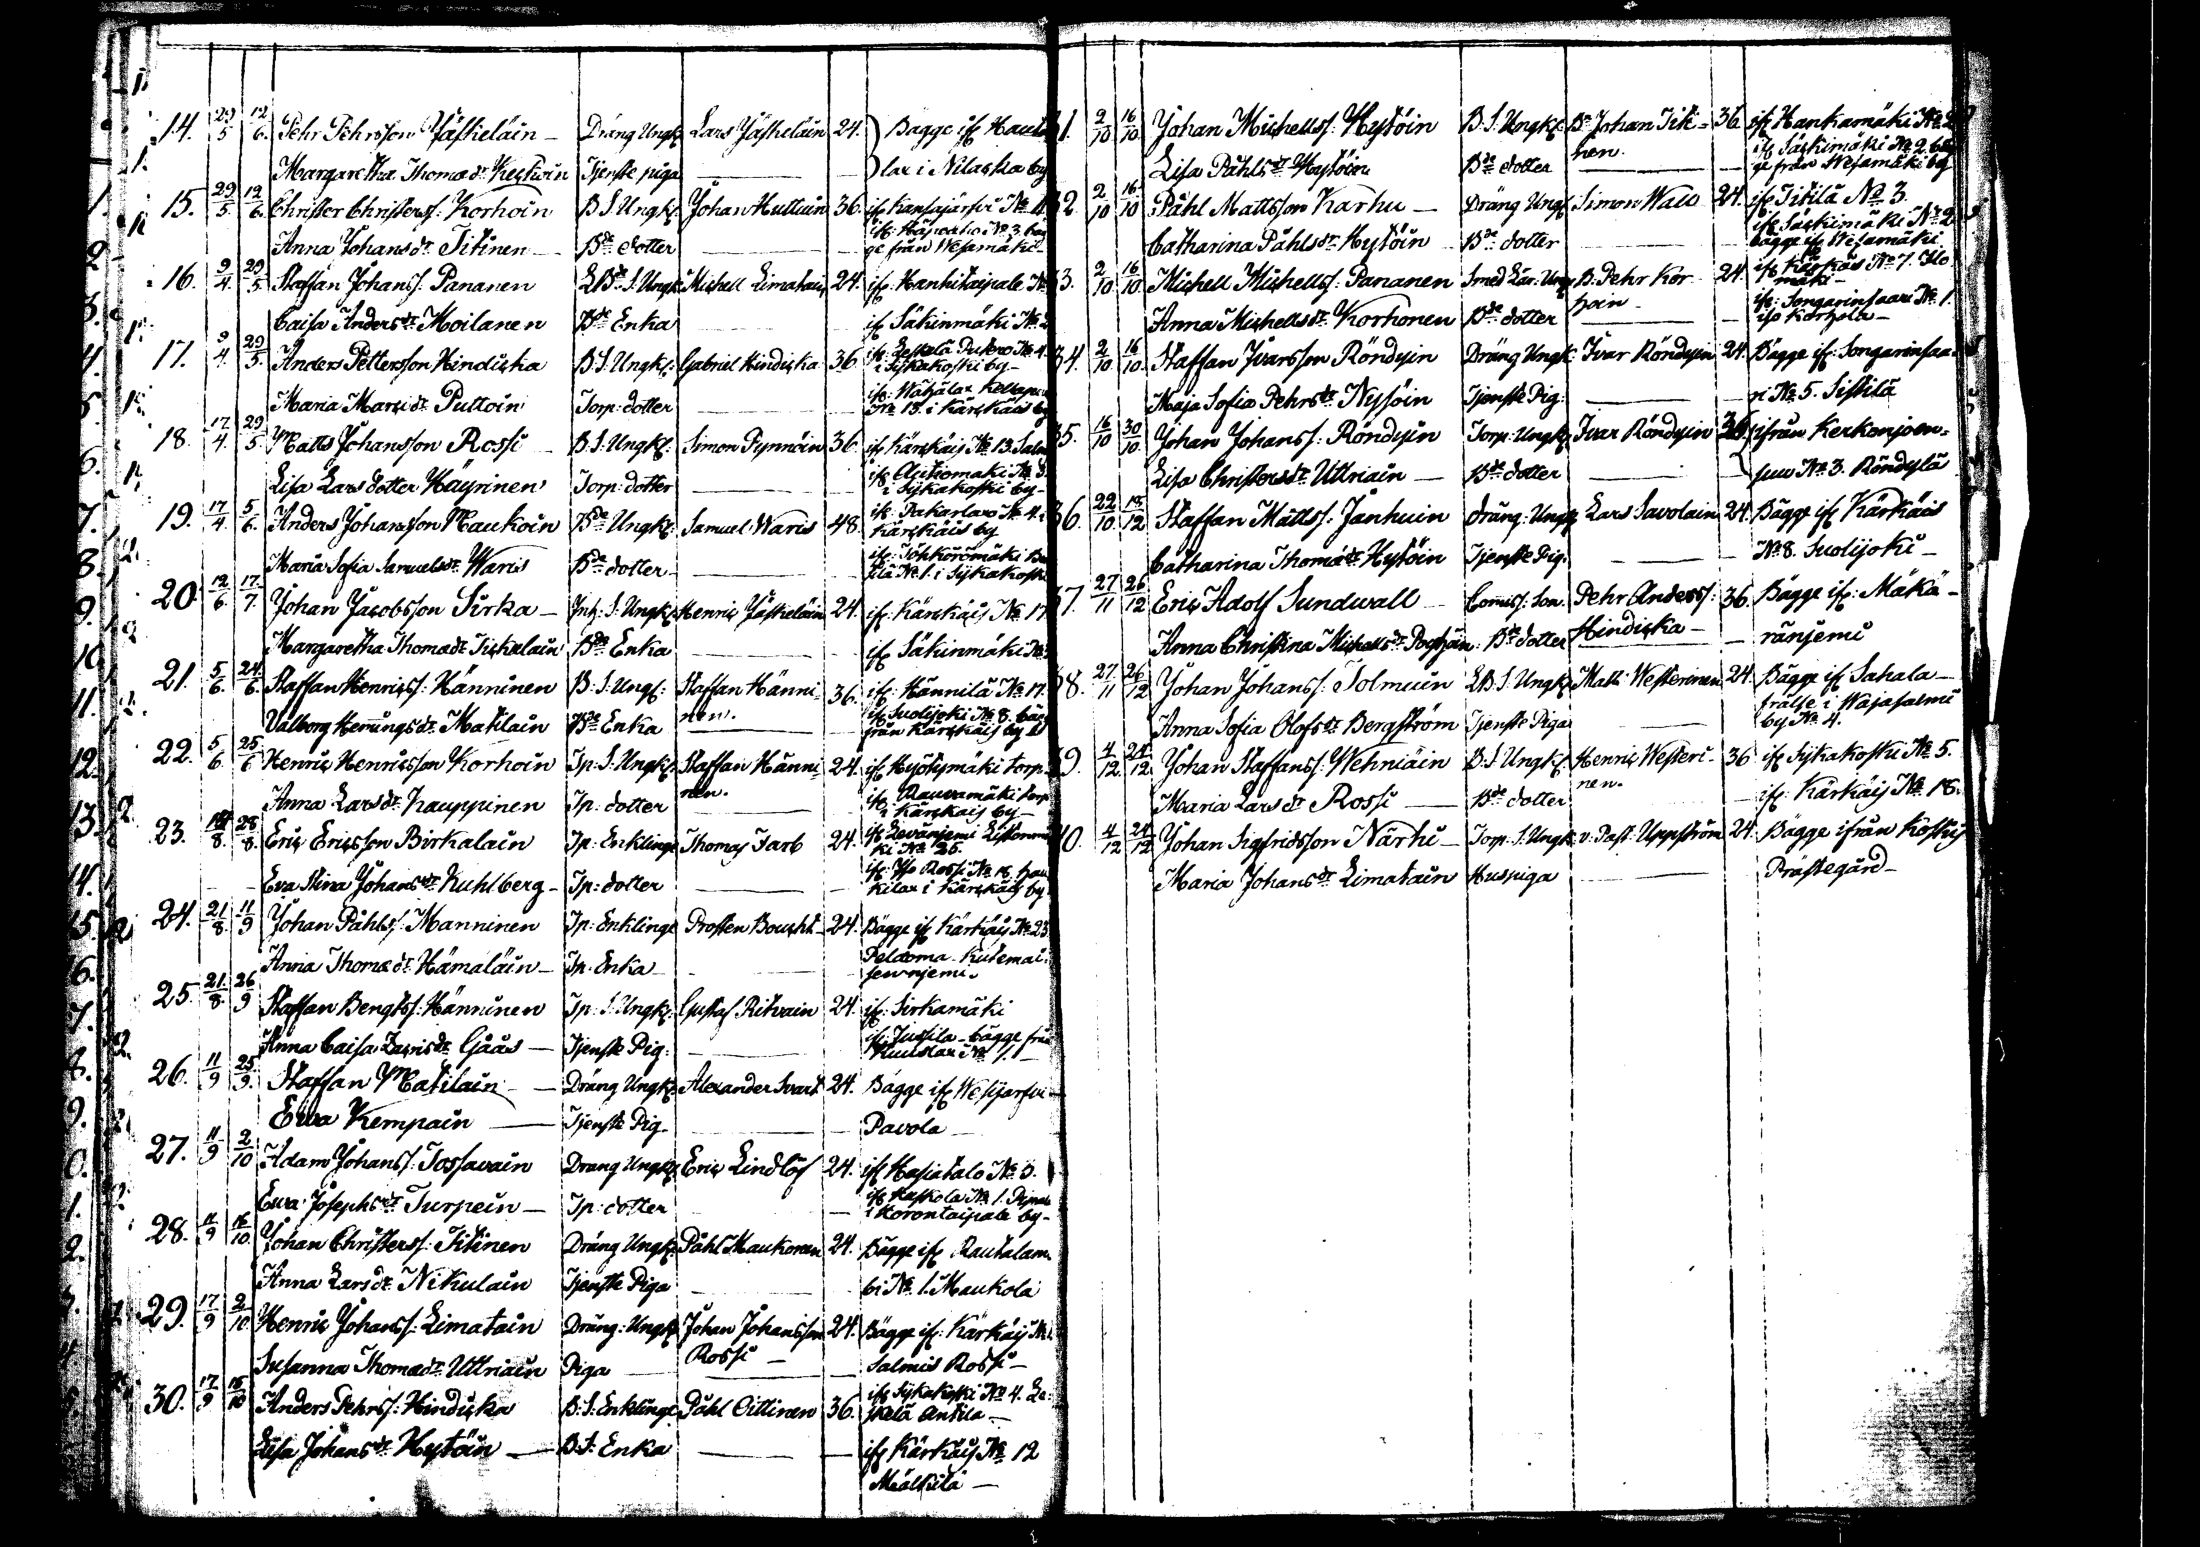 14. 29/5 12/6. Pehr Pehrsson Jäskeläin — Dräng Ungk. Lars Jäskeläin 24. Bägge if. Hauta
Margaretha Thomædr. Keskoin Tjenste piga — lax i Nilaska by
15. 29/5 12/6. Christer Christerss. Korhoin B.S. Ungk. Johan Huttuin 36. if. Kansajärfvi No
Anna Johansdr. Titinen Bde dotter — if. No 3. bäg
ge från Wesamäki
16. 9/4. 29/5 Staffan Johanss. Pananen LBde S. Ungk. Michell Limatain 24. if. Hankitaipale No
Caisa Andersdr. Moilanen Bde Enka — if. Säkinmäki No 2
17. 9/4. 29/5. Anders Pettersson Hindicka B.S. Ungk. Gabriel Hindicka 36. if. Leskelä No 4.
i Sykäkoski by
Maria Marcidr. Puttoin Torp. dotter — if.
No 13. i Kärckäis by
18. 17/4. 29/5. Matts Johansson Rossi B.S. Ungk. Simon Pynnöin 36. if. Kärckäis No 13. Salm
Lisa Lars dotter Häyrinen Torp. dotter — if.
i Sykäkoski by
19. 17/4 5/6. Anders Johansson Maukoin Bde Ungk. Samuel Waris 48. if. No 4.
Kärckäis by
Maria Sofia Samuelsdr. Waris Bde dotter — if.
No 1. i Sykäkoski
20. 12/6 17/7. Johan Jacobsson Sirka — Inh. S. Ungk. Henric Jäskeläin 24. if. Kärckäis No 17
Margaretha Thomædr. Kickelain Bde Enka — if. Säkinmäki No
21. 5/6. 24/6 Staffan Henricss. Hänninen B.S. Ungk. Staffan Hänni- 36. if. Hännilä No 17.
nen.
Valborg Henningsdr. Matilain Bde Enka — if. Suolijoki No 8. bäg
från Kärckäis by
22. 5/6 25/6 Henric Henricsson Korhoin Tp. S. Ungk. Staffan Hänni- 24. if. Hyötymäki torp
nen.
Anna Larsdr. Kauppinen Tp. dotter — if. Rauvamäki torp
i Kärckäis by
23. 28/8. Eric Ericsson Birkalain Tp. Enkling Thomas Tarb 24. if. Levänjemi
ki No 25.
Eva Stina Johansdr. Kuhlberg — Tp. dotter — if. Rossi No 18.
i Kärckäis by
24. 21/8. 11/9 Johan Påhlss. Manninen Tp. Enklinge Prosten Boucht 24. Bägge if. Kärkäis No 23
Anna Thomædr. Hämäläin — Tp. Enka — Peldoma
25. 21/8. 26/9 Staffan Bengtss. Hänninen Tp. S. Ungk. Gustaf Ritvain 24. if. Sirkamäki
Anna Caisa Zacrisdr. Gåås — Tjenste Pig. — if. Jussila bägge från
No 1.
26. 11/9 25/9. Staffan Matilain — Dräng Ungk. Alexander Svart 24. Bägge if. Wesijärfvi
Ewa Kempain — Tjenste Pig. — Pavola —
27. 11/9 2/10 Adam Johanss. Tossavain Dräng Ungk. Eric Lindlöf 24. if. Hasiatalo No 5.
Ewa Josephsdr. Turpein — Tp. dotter — if. Kaskola No 1.
i Korontaipale by
28. 11/9 16/10. Johan Christerss. Titinen Dräng Ungk. Påhl Maukonen 24. Bägge if. Rautalam
Anna Larsdr. Nikulain Tjenste Piga — bi No 1. Maukola
29. 17/9 2/10 Henric Johanss. Limatain Dräng. Ungk. Johan Johansson 24. Bägge if. Kärkäis No
Rossi —
Susanna Thomædr. Uttriain Piga — Salmis Rossi —
30. 17/9 16/10 Anders Pehrss. Hindicka B.S. Enklinge Påhl Oittinen 36. if. Sykäkoski No 4. Le-
skelä Antila —
Lisa Johansdr. Hytöin — B.S. Enka — if. Kärkäis No 12
Määttilä —
31. 2/10 16/10. Johan Michellss. Hytöin B.S. Ungk. Bde Johan Titi- 36. if. Hankamäki No 2
nen.
Lisa Påhlsdr. Hytöin Bde dotter — if. Säckimäki No 2. bäg
ge från Wesamäki by
32. 2/10 16/10 Påhl Mattsson Karhu — Dräng Ungk. Simon Walo 24. if. Titilä No 3.
Catharina Påhlsdr. Hytöin Bde dotter — if. Säckimäki No 2
bägge if. Wesamäki
33. 2/10 16/10 Michell Michellss. Pananen Smed Lär. Ungk. B. Pehr Kor- 24. if. No 7.
hoin — mäki —
Anna Michellsdr. Korhonen Bde dotter — if. Songarinsaari No 1.
Korhola —
34. 2/10 16/10. Staffan Ivarsson Röndyin Dräng Ungk. Ivar Röndyin 24. Bägge if. Songarinsaa-
Maja Sofia Pehrsdr. Nysöin Tjenste Pig. — ri No 5. Sistilä
35. 16/10 30/10. Johan Johanss. Röndyin Torp. Ungk. Ivar Röndyin 36 ifrån Kerkonjoen-
Lisa Christersdr. Uttriain — Bde dotter — suu No 3. Röndylä
36. 22/10 18/12 Staffan Mattss. Janhuin dräng. Ungk. Lars Savolain 24. Bägge if. Kärkäis
Catharina Thomædr. Hytöin Tjenste Pig. — No 8. Suolijoki —
37. 27/11 26/12 Eric Adolf Sundwall — Comiss. Son. Pehr Anderss. 36. Bägge if. Mäkä-
Hindicka —
Anna Christina Michellsdr. Bde dotter — ränjemi
38. 27/11 26/12 Johan Johanss. Tolmuin LB.S. Ungk. Matts Westerinen 24. Bägge if. Sahala —
frälse i Wajasalmi
Anna Sofia Olofsdr. Bergström Tjenste Piga — by No 4.
39. 4/12 24/12. Johan Staffanss. Wehniäin B.S. Ungk. Henric Westeri- 36 if. Sykäkoski No 5.
nen.
Maria Larsdr. Rossi — Bde dotter — if. Kärkäis No 18.
40. 4/12 24/12 Johan Sigfridsson Närhi — Torp. S. Ungk. v. Past. Uppström 24. Bägge ifrån Koskis
Maria Johansdr. Limatain Huspiga — Prästegård —